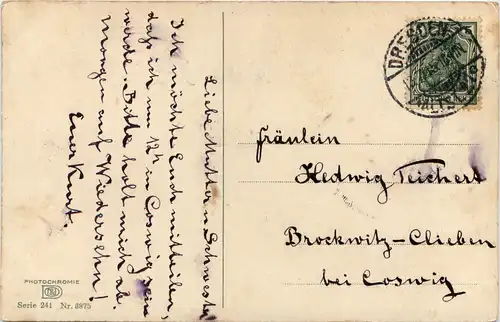 Liebe Mutter u Schwester
Ich möchte Euch mitteilen,
dass ich um 12h in Coswig sein
werde. Bitte holt mich ab.
Morgen auf Wiedersehen!
Euer Kurt.
PHOTOCHROMIE
Serie 241 Nr. 3875
DRESDEN
ALTST
Fräulein
Hedwig Teichert
Brockwitz-Clieben
bei Coswig